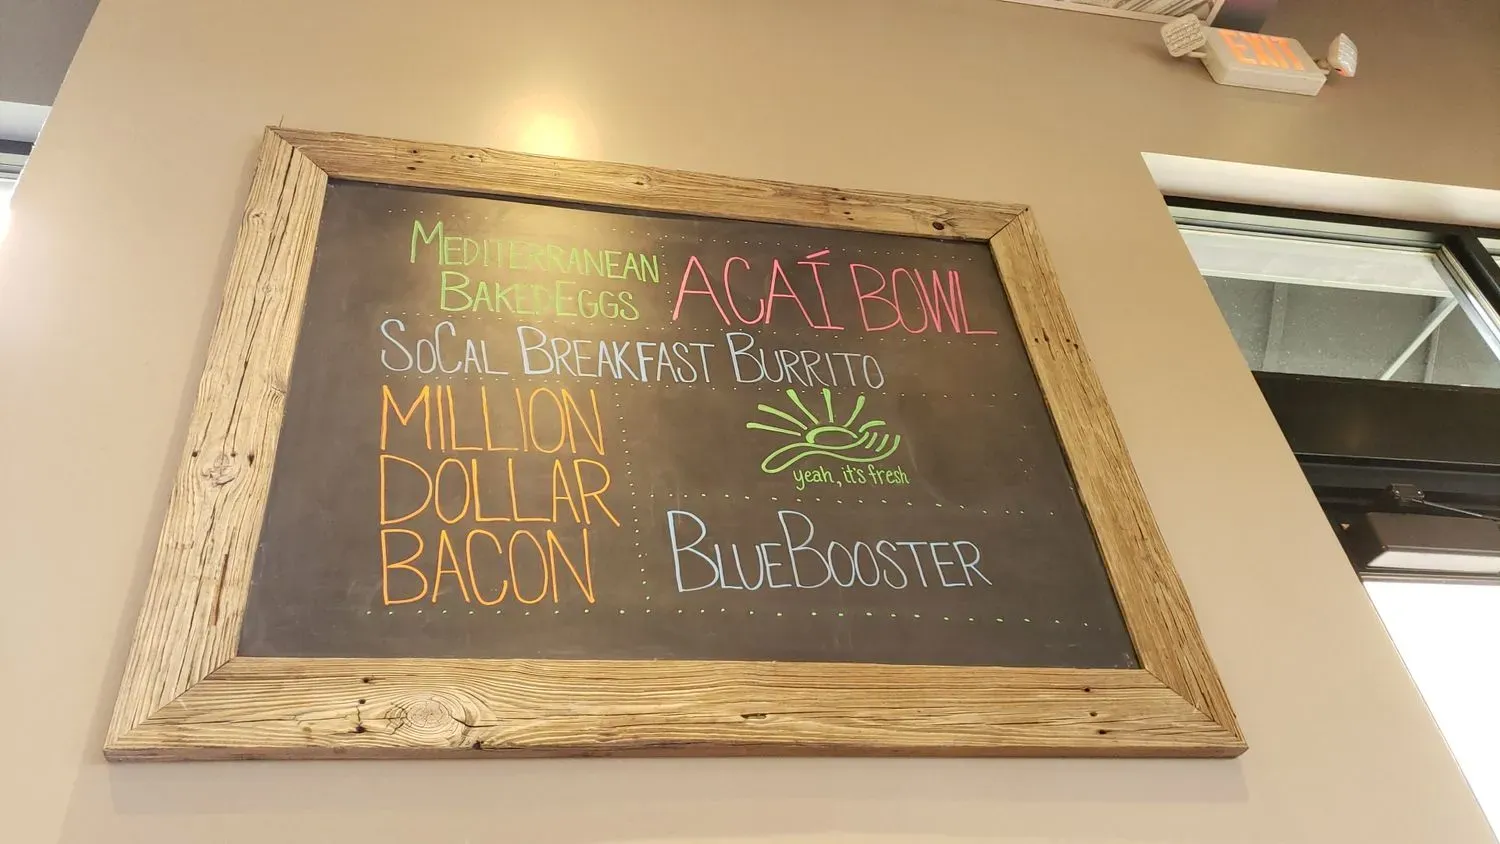 EXIT
MEDITERRANEAN
BAKED EGGS
ACAÍ BOWL
SOCAL BREAKFAST BURRITO
MILLION
DOLLAR
BACON
yeah, it's fresh
BLUEBOOSTER